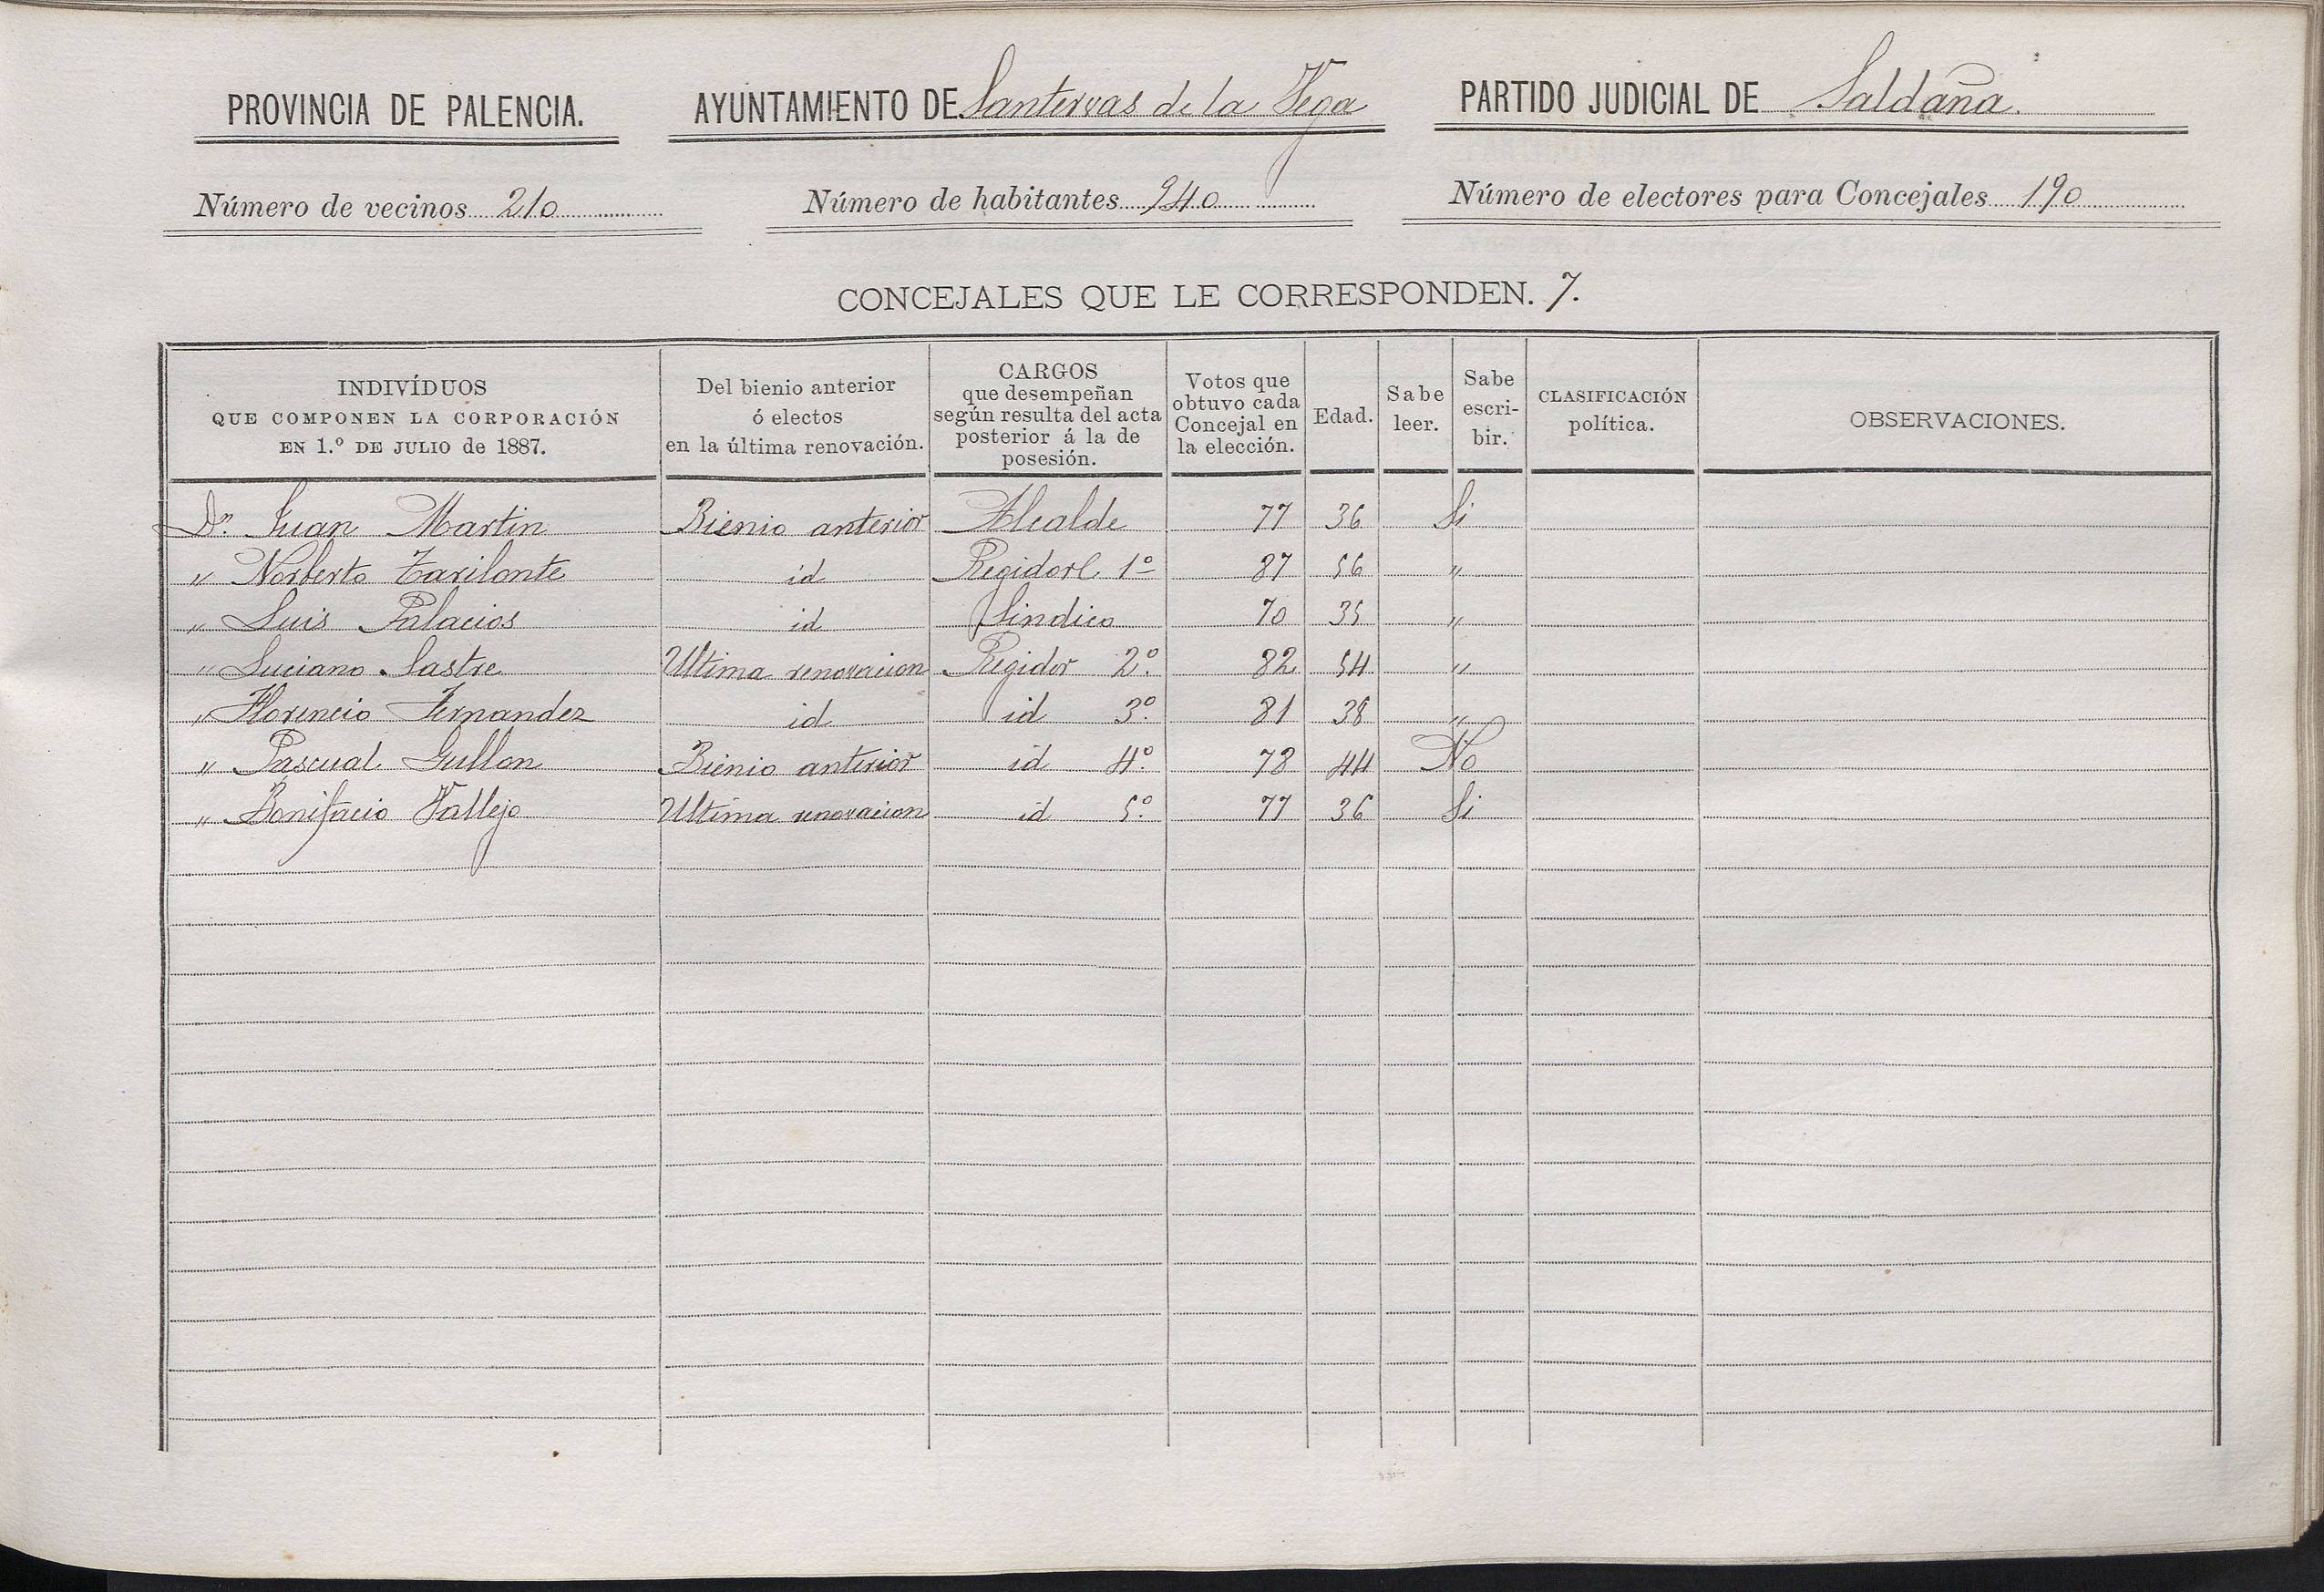 PROVINCIA DE PALENCIA. AYUNTAMIENTO DE Santervas de la Vega PARTIDO JUDICIAL DE Saldaña.
Número de vecinos 210 Número de habitantes 940 Número de electores para Concejales 190
CONCEJALES QUE LE CORRESPONDEN. 7.
INDIVÍDUOS
QUE COMPONEN LA CORPORACIÓN
EN 1.º DE JULIO de 1887.
Del bienio anterior
ó electos
en la última renovación.
CARGOS
que desempeñan
según resulta del acta
posterior á la de
posesión.
Votos que
obtuvo cada
Concejal en
la elección.
Edad.
Sabe
leer.
Sabe
escri-
bir.
CLASIFICACIÓN
política.
OBSERVACIONES.
Dn. Juan Martin Bienio anterior Alcalde 77 36 Si
" Norberto Tarilonte id Regidor 1º 87 56 "
" Luis Palacios id Sindico 70 35 "
" Luciano Sastre Ultima renovacion Regidor 2º. 82 54 "
" Florencio Fernandez id id 3º. 81 38 "
" Pascual Gullon Bienio anterior id 4º. 78 44 No
" Bonifacio Vallejo Ultima renovacion id 5º. 77 36 Si